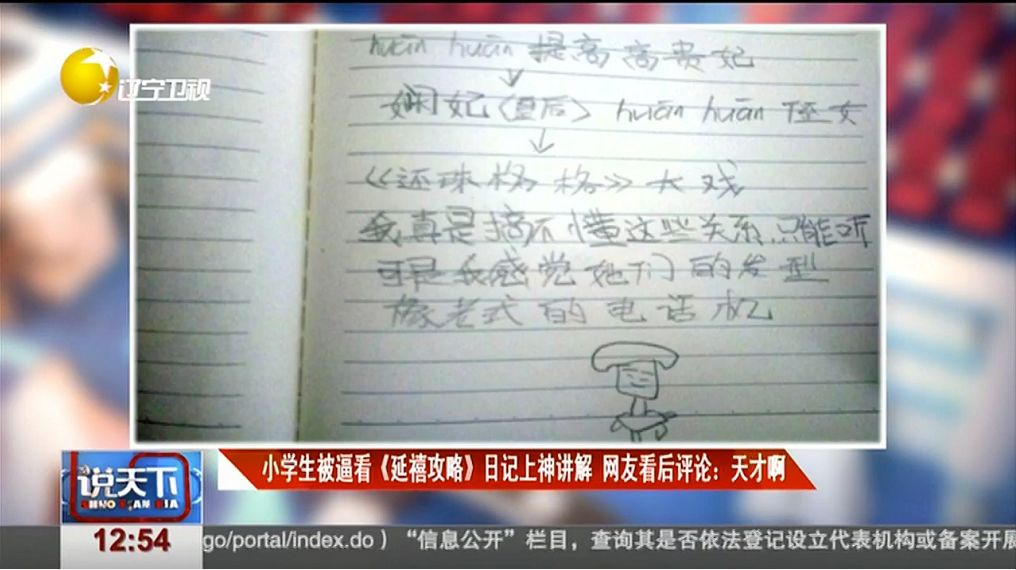 辽宁卫视
huān huān 提高高贵妃
↓
娴妃(皇后) huān huān 侄女
↓
《还珠格格》大戏
我真是搞不懂这些关系,只能听
可是我感觉她们的发型
像老式的电话机
小学生被逼看《延禧攻略》日记上神讲解 网友看后评论:天才啊
说天下
SHUO TIAN XIA
12:54
go/portal/index.do)“信息公开”栏目,查询其是否依法登记设立代表机构或备案开展